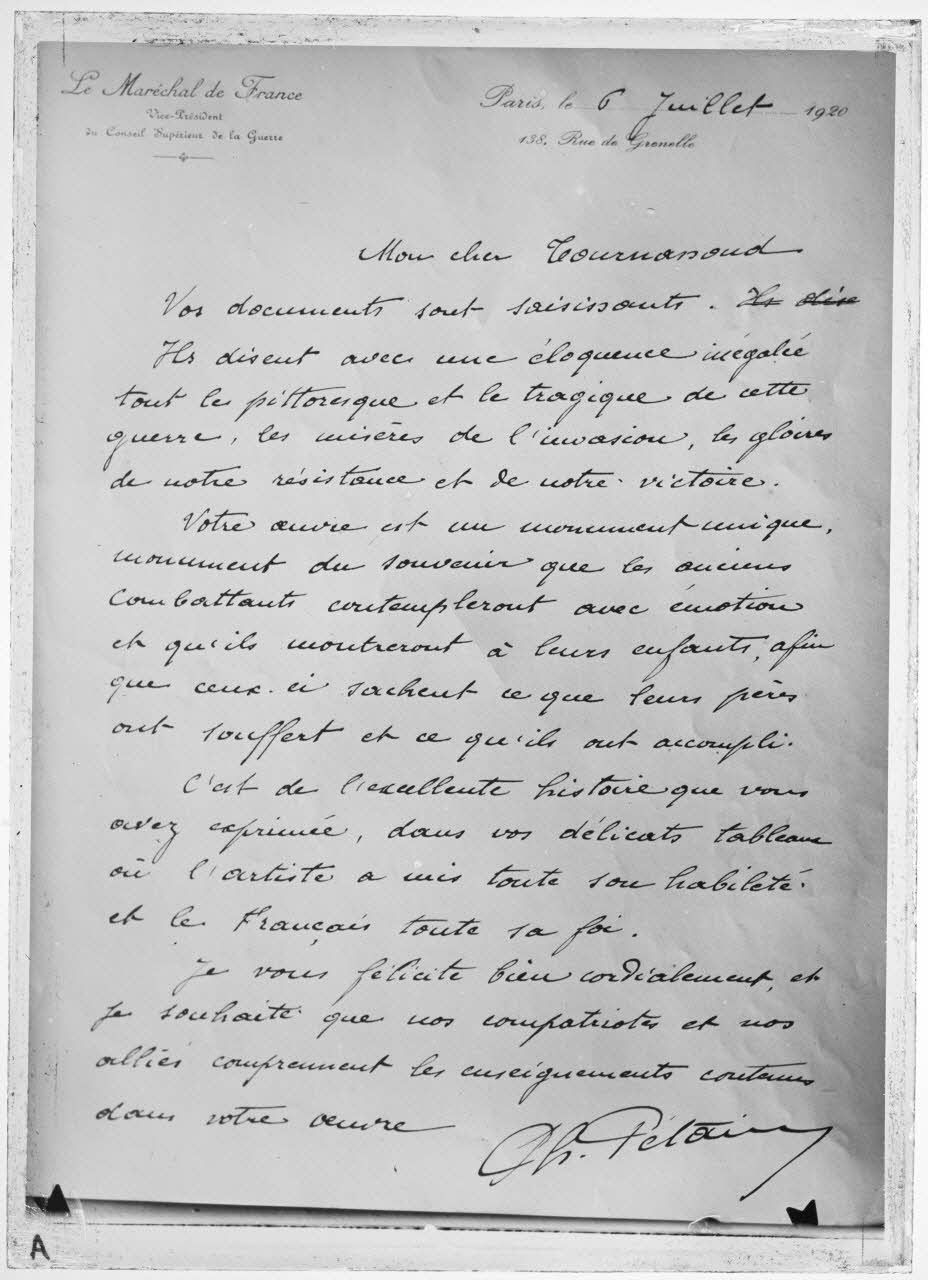 Le Maréchal de France
Vice-Président
du Conseil Supérieur de la Guerre
Paris, le 6 Juillet 1920
138, Rue de Grenelle
Mon cher Tournassoud
Vos documents sont saisissants. Ils dise
Ils disent avec une éloquence inégalée
tout le pittoresque et le tragique de cette
guerre, les misères de l'invasion, les gloires
de notre résistance et de notre victoire.
Votre œuvre est un monument unique,
monument du souvenir que les anciens
combattants contempleront avec émotion
et qu'ils montreront à leurs enfants, afin
que ceux-ci sachent ce que leurs pères
ont souffert et ce qu'ils ont accompli.
C'est de l'excellente histoire que vous
avez exprimée, dans vos délicats tableaux
où l'artiste a mis toute son habileté
et le Français toute sa foi.
Je vous félicite bien cordialement, et
je souhaite que nos compatriotes et nos
alliés comprennent les enseignements contenus
dans votre œuvre
Ph. Pétain
A